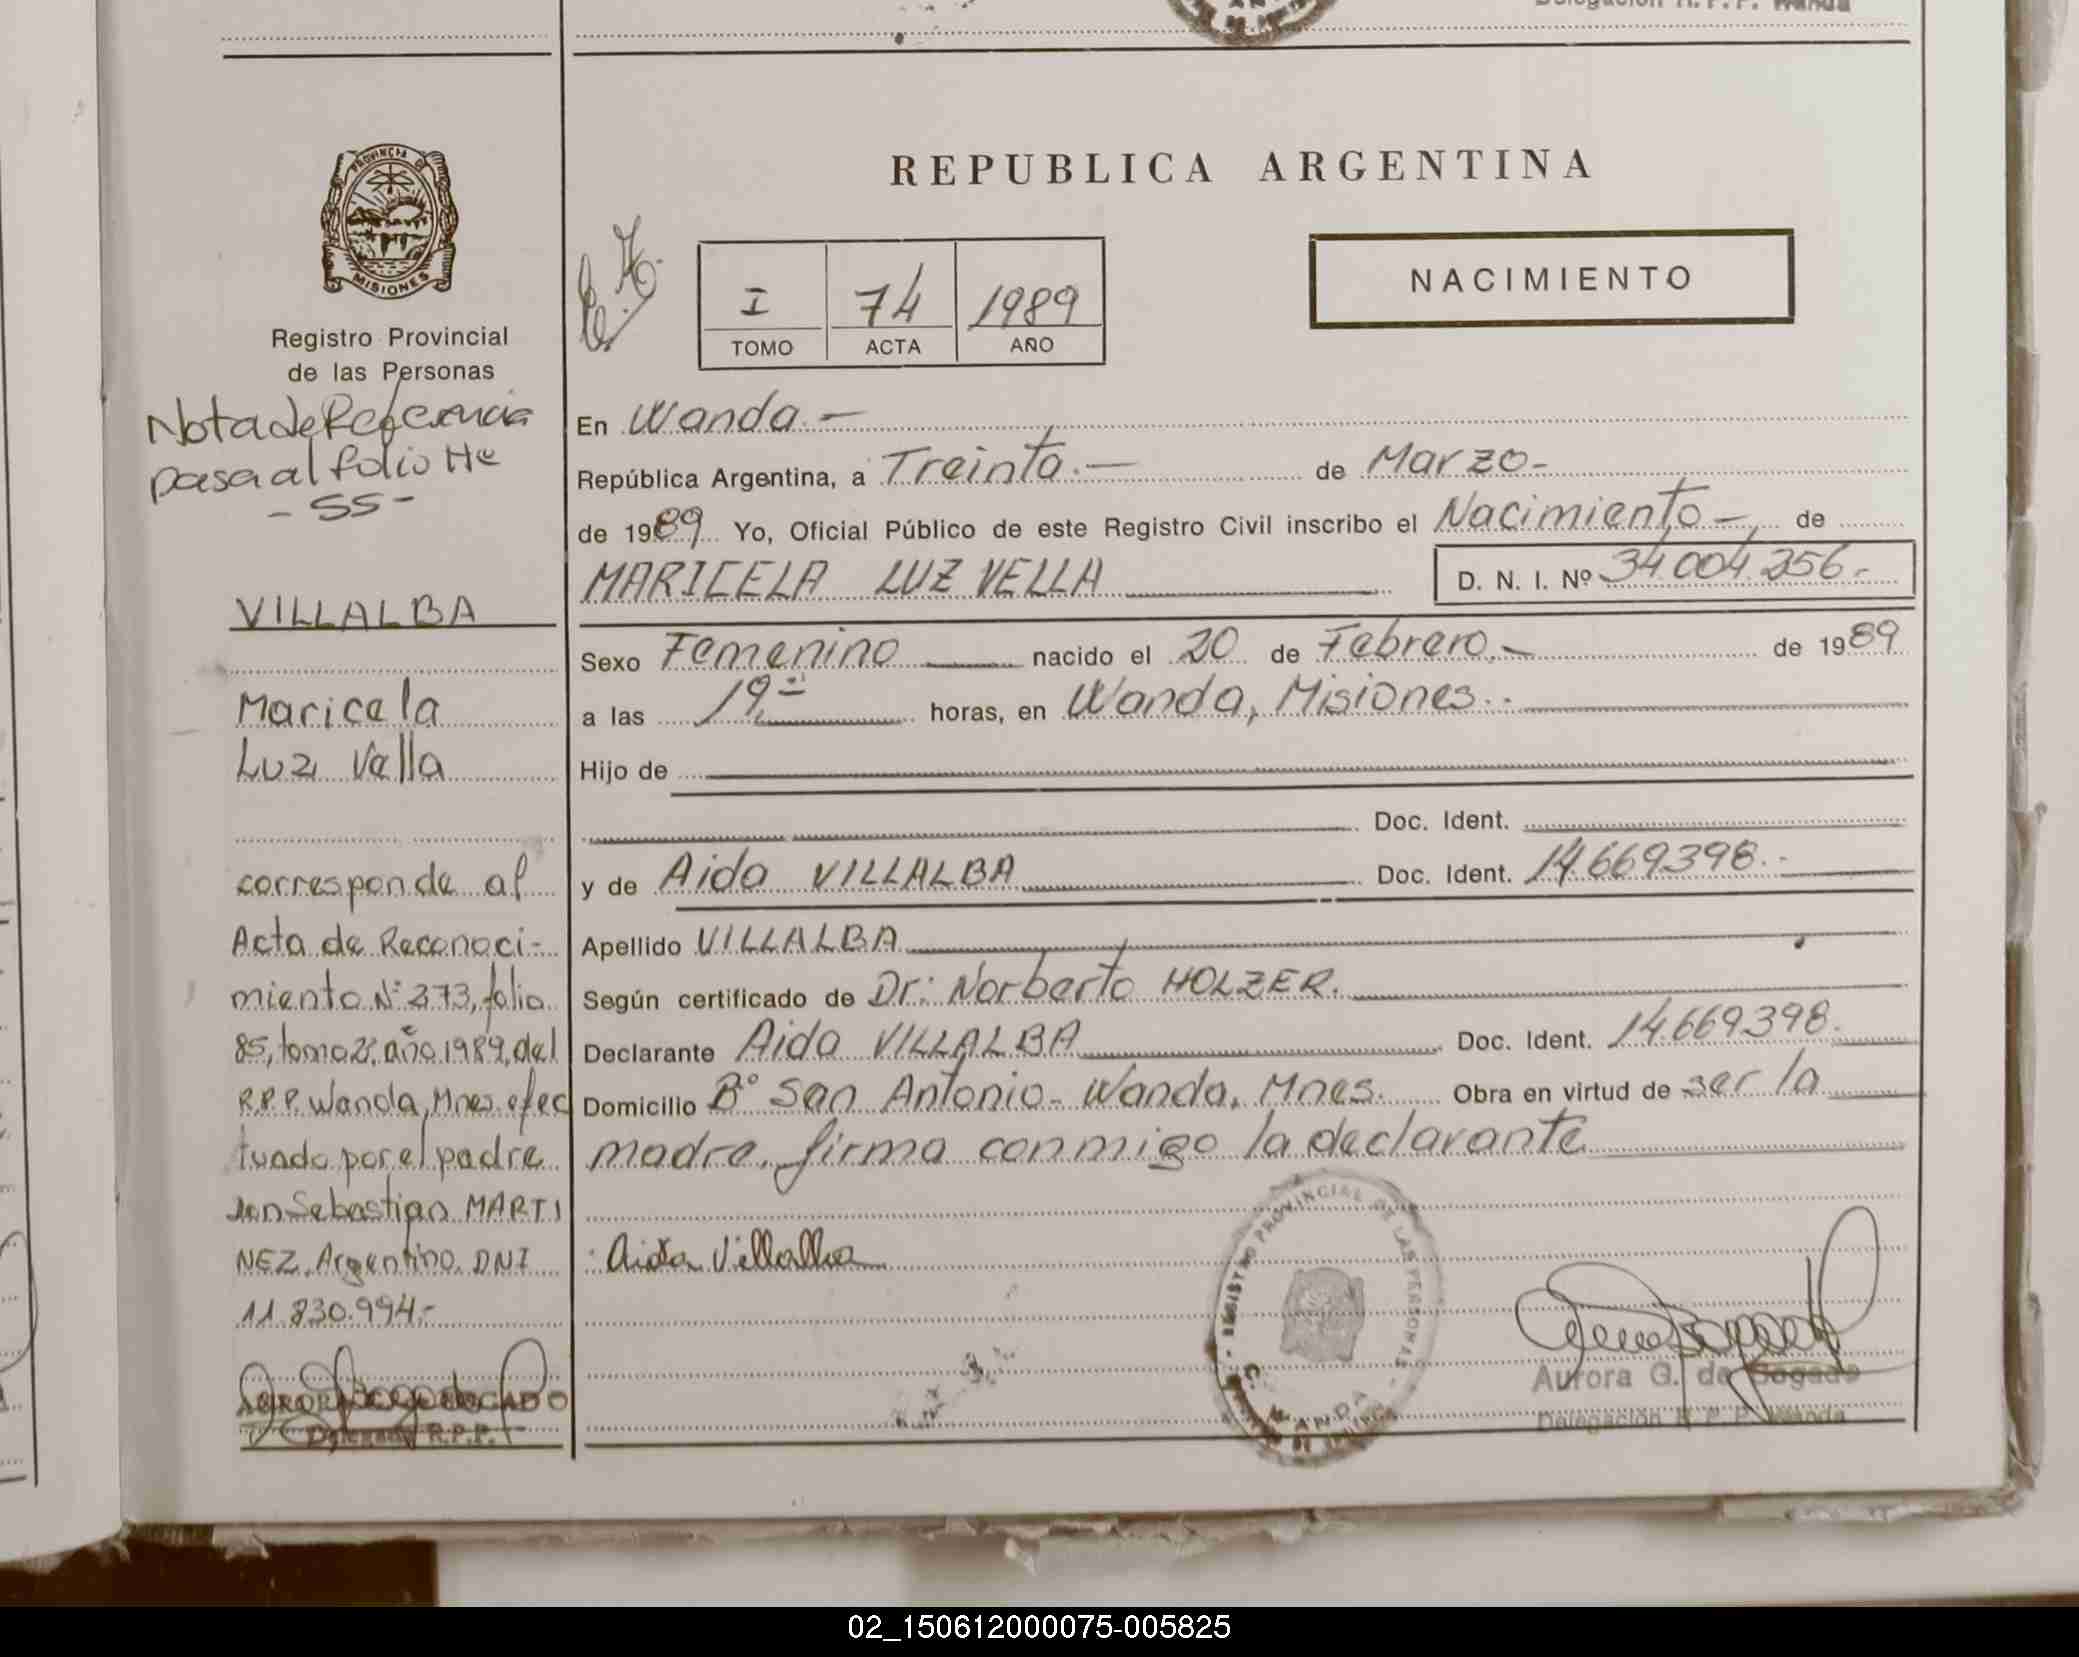 Delegación R.P.P. Wanda
PROVINCIA DE
MISIONES
Registro Provincial
de las Personas
Nota de Referencia
pasa al folio Nº
- 55 -
VILLALBA
Maricela
Luz Vella
corresponde al
Acta de Reconoci-
miento Nº 273, folio
85, tomo 2º, año 1989, del
R.P.P. Wanda, Mnes. efec
tuado por el padre
don Sebastian MARTI
NEZ, Argentino, DNI
11.830.994.-
AURORA G. de SOGADO
Delegada R.P.P.
REPUBLICA ARGENTINA
I 74 1989
TOMO ACTA AÑO
NACIMIENTO
En Wanda.-
República Argentina, a Treinta.- de Marzo-
de 1989 Yo, Oficial Público de este Registro Civil inscribo el Nacimiento-, de
MARICELA LUZ VELLA D. N. I. Nº 34.004.256.-
Sexo Femenino nacido el 20 de Febrero.- de 1989
a las 19.- horas, en Wanda, Misiones.-
Hijo de
Doc. Ident.
y de Aida VILLALBA Doc. Ident. 14.669.398.-
Apellido VILLALBA
Según certificado de Dr: Norberto HOLZER.
Declarante Aida VILLALBA Doc. Ident. 14.669.398.
Domicilio Bº San Antonio- Wanda, Mnes. Obra en virtud de ser la
madre, firma conmigo la declarante
Aida Villalba
REGISTRO PROVINCIAL DE LAS PERSONAS
WANDA
Aurora G. de Sogado
Delegación R.P.P. Wanda
02_150612000075-005825